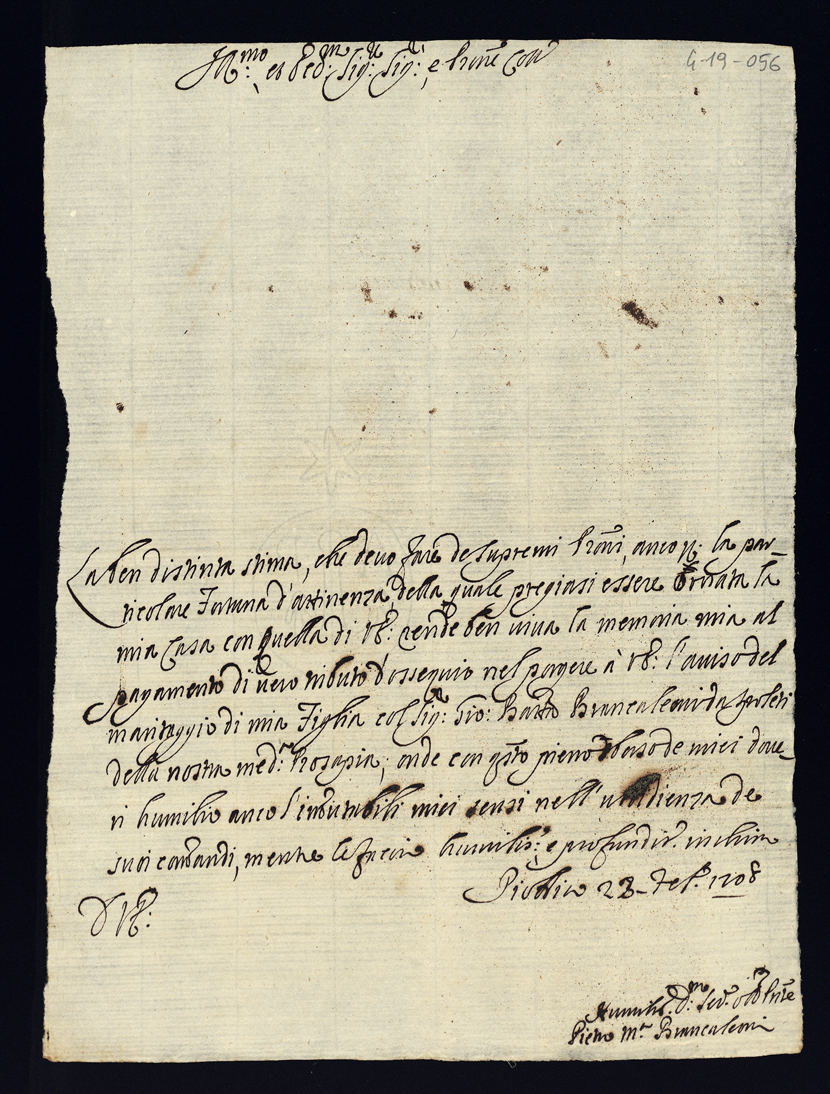 Ill.mo et Ecc.mo Sig.r Sig.r e P̃rone Col.mo
G-19-056
La ben distinta stima, che devo fare de Supremi P̃roni, anco p. la par-
ticolare Fortuna d'attinenza, della quale pregiasi essere Ornata la
mia Casa con quella di VE: rende ben viva la memoria mia al
pagamento di vero tributo d'ossequio nel porgere à VE: l'aviso del
maritaggio di mia Figlia col Sig.r Gio: Batta Brancaleoni da Spoleti
della nostra med.ma Prosapia; onde con q̃sto pieno de miei dove-
ri humilio anco l'immutabili miei sensi nell'ubbidienza de
suoi comandi, mentre le faccio humilis.a e profundis. inchino
Piobico 28 Feb.o 1708
D VE:
Humilis. D.mo Ser. obb
Pietro M.a Brancaleoni